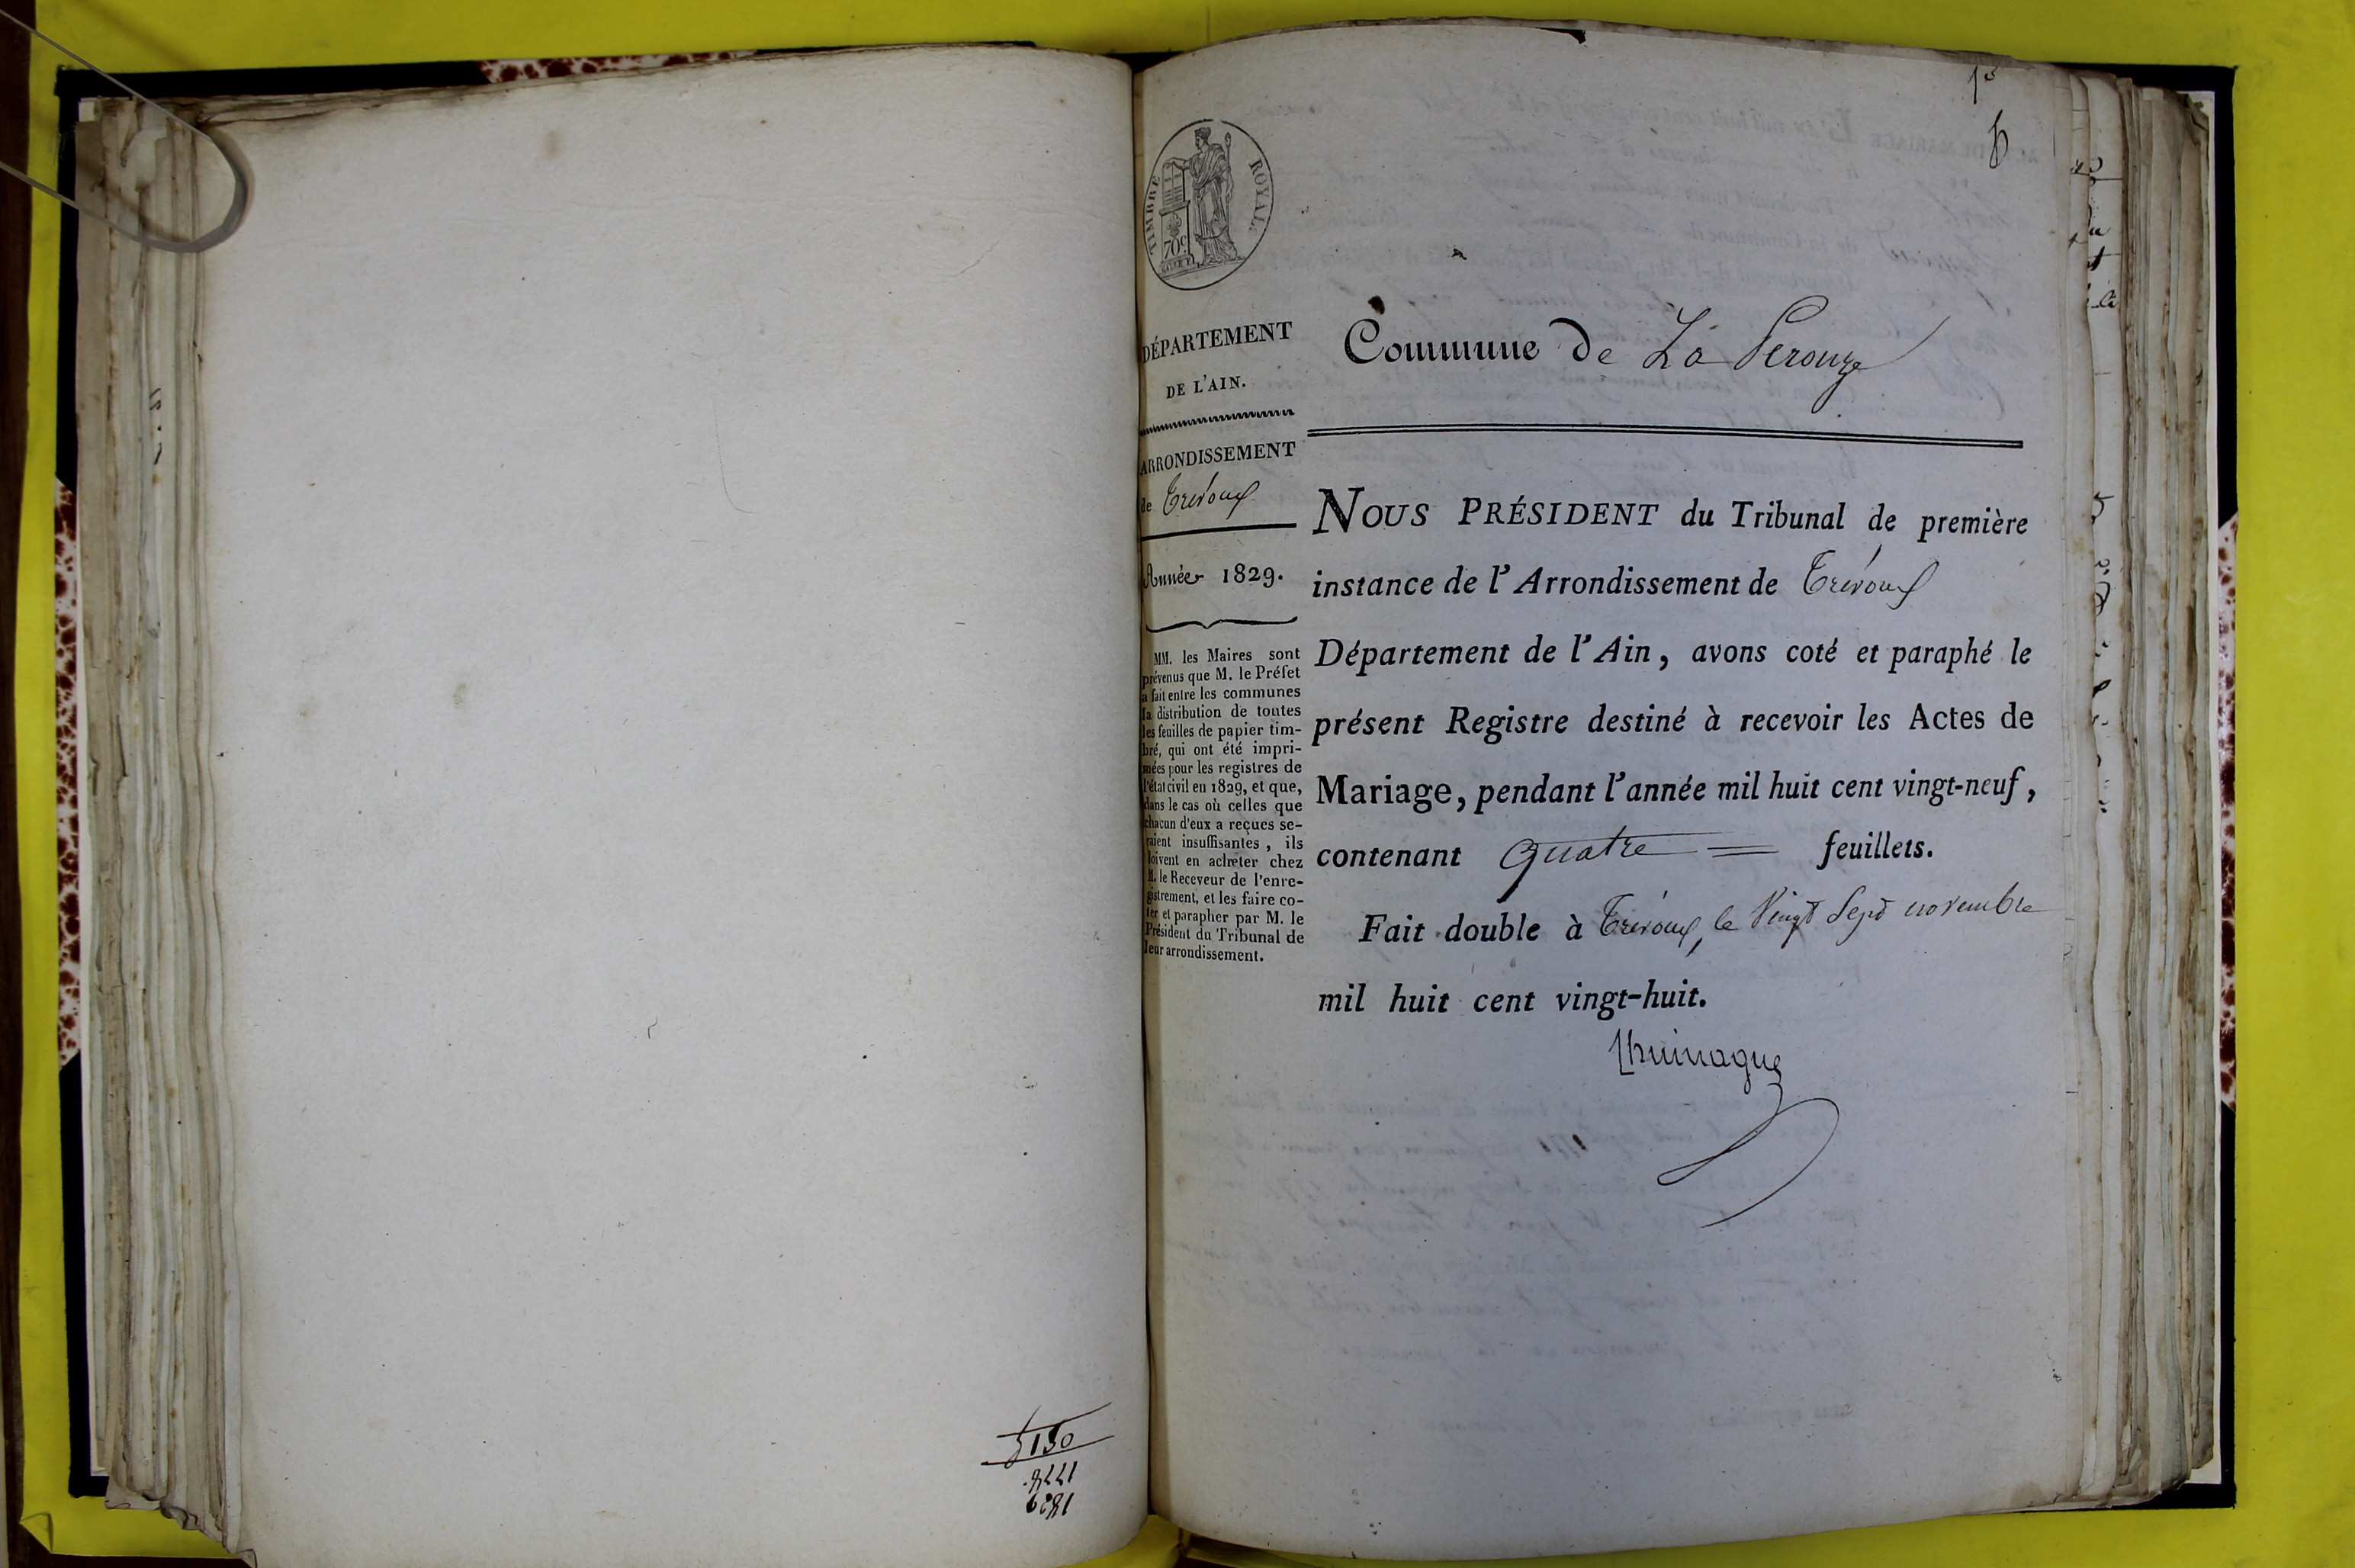 TIMBRE ROYAL
70c
DÉPARTEMENT
DE L'AIN.
ARRONDISSEMENT
de Trévoux
Année 1829.
MM. les Maires sont
prévenus que M. le Préfet
a fait entre les communes
la distribution de toutes
les feuilles de papier tim-
bré, qui ont été impri-
mées pour les registres de
l'état civil en 1829, et que,
dans le cas où celles que
chacun d'eux a reçues se-
raient insuffisantes, ils
doivent en acheter chez
M. le Receveur de l'enre-
gistrement, et les faire co-
ter et parapher par M. le
Président du Tribunal de
leur arrondissement.
Commune de La Perouze
NOUS PRÉSIDENT du Tribunal de première
instance de l'Arrondissement de Trévoux
Département de l'Ain, avons coté et paraphé le
présent Registre destiné à recevoir les Actes de
Mariage, pendant l'année mil huit cent vingt-neuf,
contenant quatre = feuillets.
Fait double à Trévoux, le Vingt Sept novembre
mil huit cent vingt-huit.
1829
1778